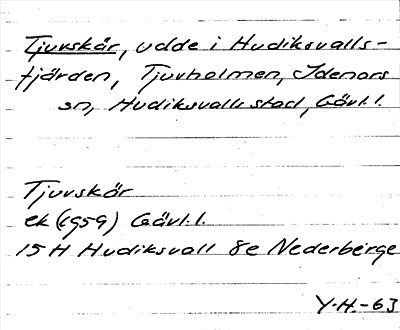 Tjuvskär, udde i Hudiksvalls-
fjärden, Tjuvholmen, Idenors
sn, Hudiksvalls stad, Gävl.l.
Tjuvskär
ek (1959) Gävl.l.
15H Hudiksvall 8e Nederberge
Y.H.-63